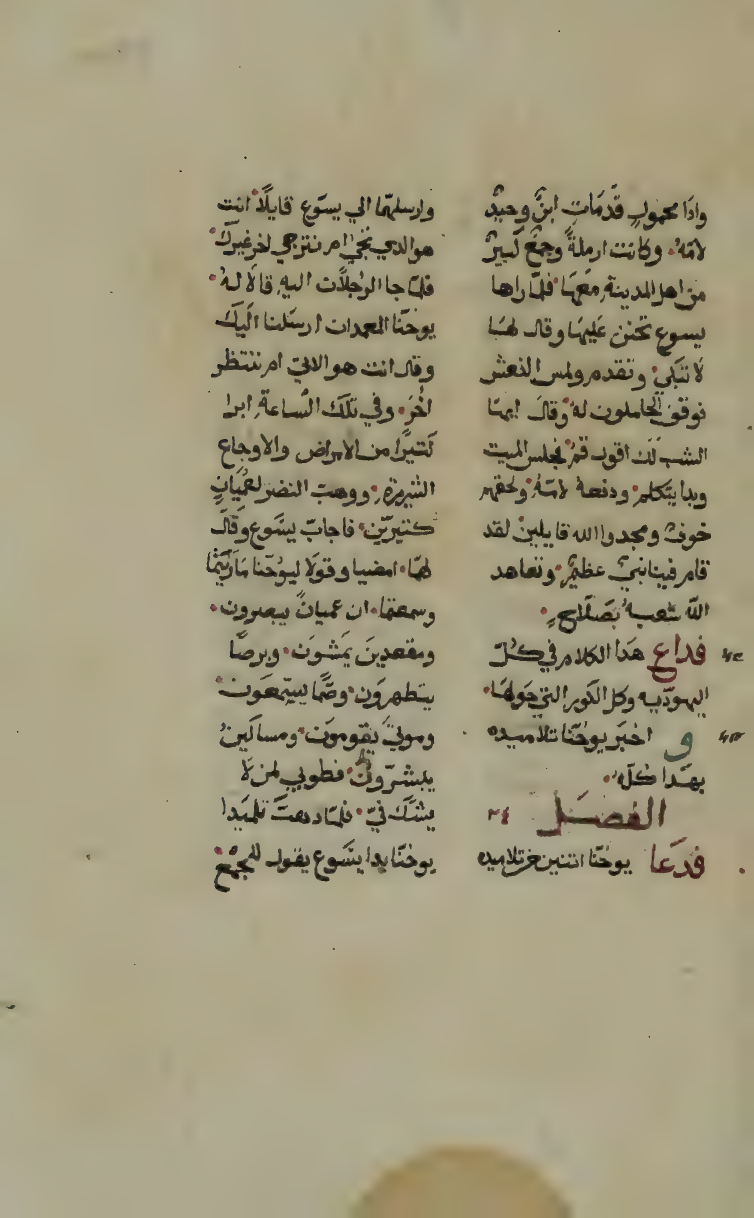 واذا محمول قدمات ابنٌ وحيدٌ
لامّه وكانت ارملةً وجمعٌ كبيرٌ
من اهل المدينة معها فلمّا راها
يسوع تحنن عليها وقال لهــا
لا تبكي وتقدم ولمس النعش
فوقف الحاملون له وقال ايها
الشب لك اقول قم فجلس الميت
وبدا يتكلم ودفعهُ لامّه ولحقهم
خوفٌ ومجدوا الله قايلين لقد
قام فينا نبيٌ عظيمٌ وتعاهد
اللّه شعبهُ بصَلاحٍ
فداع هذا الكلام في كُلّ
اليهوديه وكل الكور التي حولها
و اخبَر يوحَنّا تلاميده
بهَدا كلّه
الفصَل ٢٤
فدَعا يوحنا اتنين من تلاميده
وارسلهمَا الي يسوع قايلاً انت
هو الدي تجي ام نترجي اخر غيرك
فلمّا جا الرجلان اليه قالا لهُ
يوحنّا المعمدان ارسَلنا اليك
وقال انت هو الاتي ام ننتظر
اخَر وفي تلك السّاعة ابرا
كتيرًا من الامراض والاوجاع
الشريرة ووهب النضر لعُميَانٍ
كتيريّن فاجابَ يسَوع وقالَ
لهمَا امضيا وقولا ليوحَنّا مَا رَايتمَا
وسمعتما ان عميانً يبصرون
ومقعدينَ يمَشونَ وبرصًا
يتطهرون وصُمّا يسمَعون
وموتيَ يقومون ومساكينُ
يبشرّون فطوبي لمن لا
يشكَ فيّ فلمّا دهبَ تلميَدا
يوحَنّا بدا يسَوع يقول للجمْع